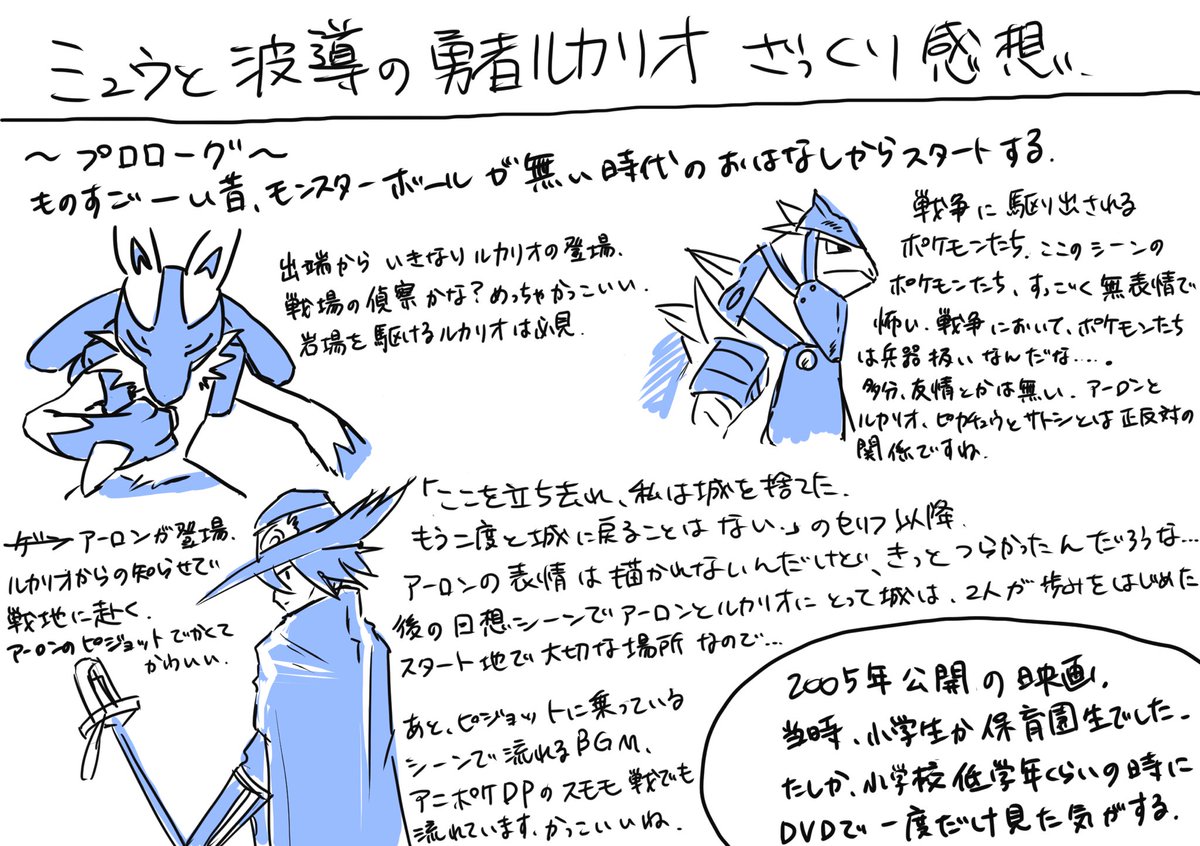 ミュウと波導の勇者ルカリオ ざっくり感想、
～プロローグ～
ものすごーい昔、モンスターボールが無い時代のおはなしからスタートする.
出端からいきなりルカリオの登場.
戦場の偵察かな?めっちゃかっこいい.
岩場を駆けるルカリオは必見.
戦争に駆り出される
ポケモンたち. ここのシーンの
ポケモンたち、すっごく無表情で
怖い. 戦争において、ポケモンたち
は兵器扱いなんだな…..
多分、友情とかは無い. アーロンと
ルカリオ、ピカチュウとサトシとは正反対の
関係ですね.
アーロンが登場.
ルカリオからの知らせで
戦地に赴く.
アーロンのピジョットでかくて
かわいい.
「ここを立ち去れ、私は城を捨てた.
もう二度と城に戻ることはない.」のセリフ以降.
アーロンの表情は描かれないんだけど、きっとつらかったんだろうな…
後の回想シーンでアーロンとルカリオにとって城は、2人が歩みをはじめた
スタート地で大切な場所なので…
あと、ピジョットに乗っている
シーンで流れるBGM、
アニポケDPのスモモ戦でも
流れています、かっこいいね.
2005年公開の映画.
当時、小学生か保育園生でした.
たしか、小学校低学年くらいの時に
DVDで一度だけ見た気がする.